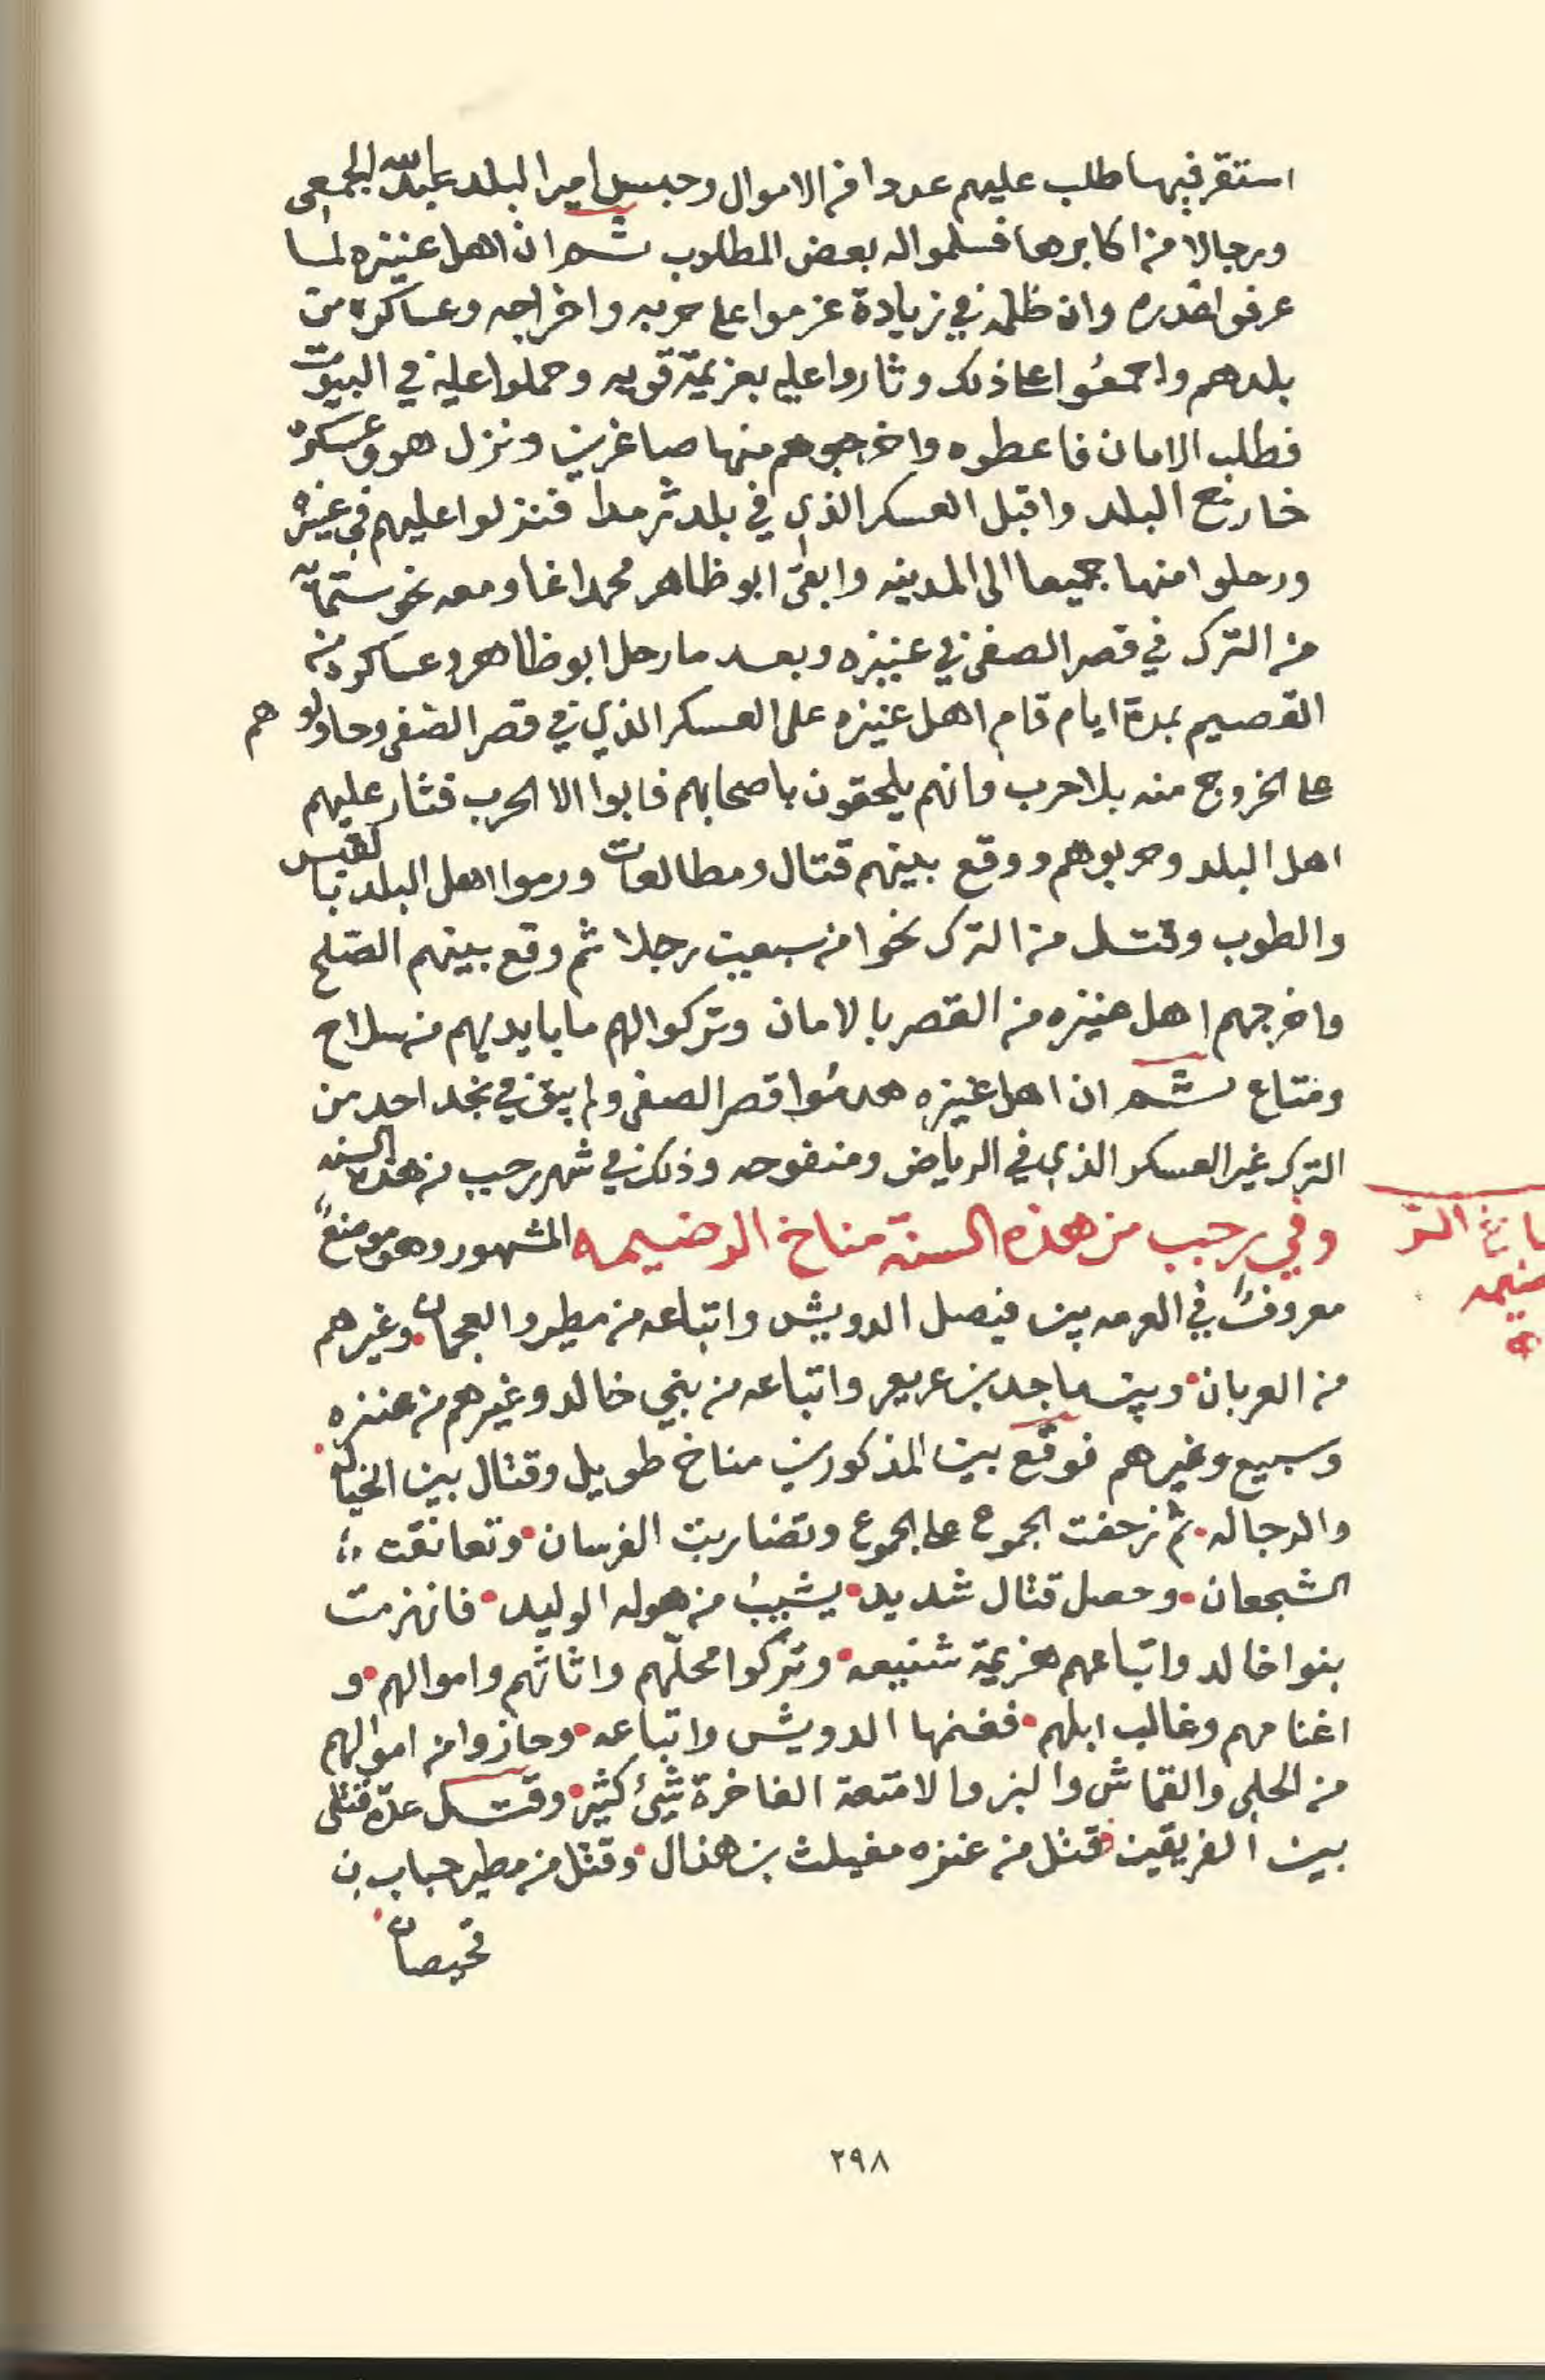 استقر فيها طلب عليهم عددا من الاموال وحبس امير البلد عبدالله الجمعي
ورجالا من اكابرها فسلموا له بعض المطلوب ثم ان اهل عنيزه لما
عرفوا غدره وان ظلمه في زيادة عزموا على حربه واخراجه وعساكره من
بلدهم واجمعُوا على ذلك وثاروا عليه بعزيمة قويه وحملوا عليه في البيوت
فطلب الامان فاعطوه واخرجوهم منها صاغرين ونزل هو وعسكره
خارج البلد واقبل العسكر الذي في بلد ثرمدا فنزلوا عليهم في عنيزه
ورحلوا منها جميعا الى المدينه وابقى ابو ظاهر محمد اغا ومعه نحو ستمائة
من الترك في قصر الصفى في عنيزه وبعد ما رحل ابو ظاهر وعساكره من
القصيم بمدة ايام قام اهل عنيزه على العسكر الذي في قصر الصفى وحاولوهم
على الخروج منه بلا حرب وانهم يلحقون باصحابهم فابوا الا الحرب فثار عليهم
اهل البلد وحربوهم ووقع بينهم قتال ومطالعات ورموا اهل البلد بالقبس
والطوب وقتل من الترك نحوا من سبعين رجلا ثم وقع بينهم الصّلح
واخرجهم اهل عنيزه من القصر بالامان وتركوا لهم ما بايديهم من سلاح
ومتاع ثم ان اهل عنيزه هدمُوا قصر الصفى ولم يبق في نجد احد من
الترك غير العسكر الذي في الرياض ومنفوحه وذلك في شهر رجب من هذه السنه
وفي رجب من هذه السنة مناخ الرضيمه المشهور وهو موضعٌ
معروفٌ في العرمه بين فيصل الدويش واتباعه من مطير والعجمان وغيرهم
من العربان وبين ماجد بن عريعر واتباعه من بني خالد وغيرهم من عنزه
وسبيع وغيرهم فوقع بين المذكورين مناخ طويل وقتال بين الخياله
والرجاله ثم زحفت الجموع على الجموع وتضاربت الفرسان وتعانقت
الشجعان وحصل قتال شديد يشيبُ من هوله الوليد فانهزمت
بنوا خالد واتباعهم هزيمة شنيعه وتركوا محلّهم واثاثهم واموالهم و
اغنامهم وغالب ابلهم فغنمها الدويش واتباعه وحازوا من اموالهم
من الحلي والقماش والبز والامتعة الفاخرة شيئ كثير وقتل عدّة قتلى
بين الفريقين قتل من عنزه مغيلث بن هذال وقتل من مطير حباب بن
قحيصان
٢٩٨